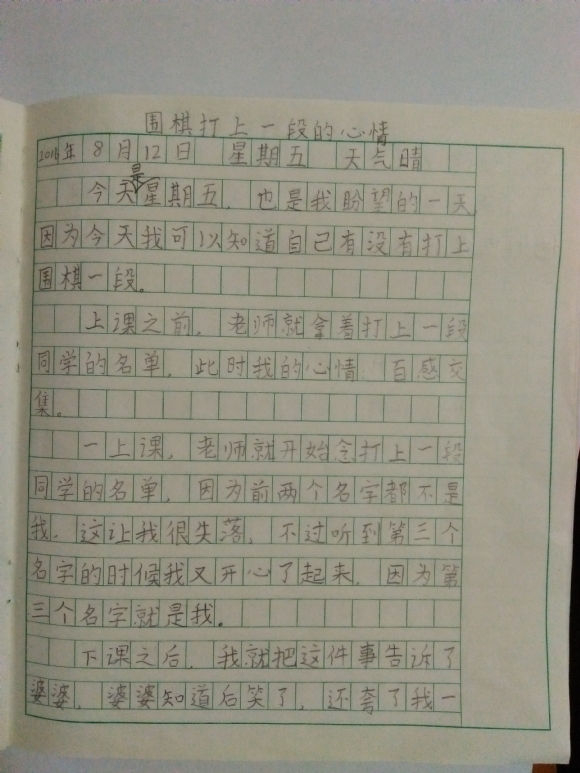 围棋打上一段的心情
2016年8月12日 星期五 天气晴
今天是星期五，也是我盼望的一天
因为今天我可以知道自己有没有打上
围棋一段。
上课之前，老师就拿着打上一段
同学的名单，此时我的心情 百感交
集。
一上课，老师就开始念打上一段
同学的名单，因为前两个名字都不是
我，这让我很失落，不过听到第三个
名字的时候我又开心了起来，因为第
三个名字就是我。
下课之后，我就把这件事告诉了
婆婆，婆婆知道后笑了，还夸了我一